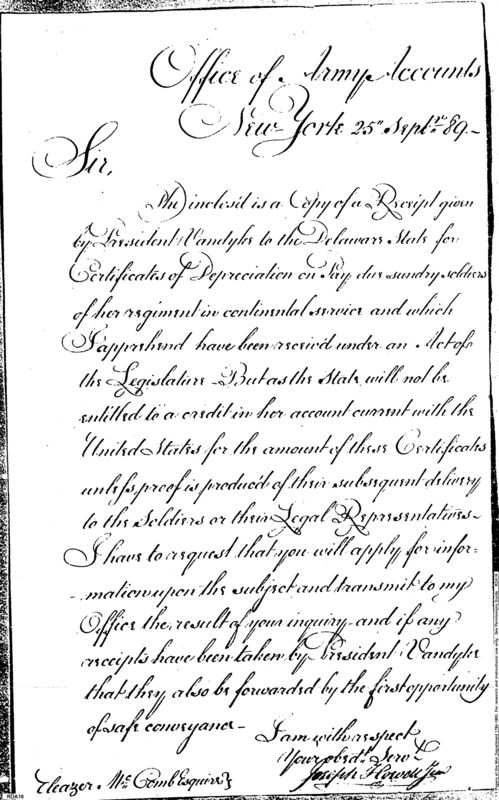 Office of Army Accounts
New York 25" Septr. 89. -
Sir,
The inclosed is a Copy of a Receipt given
by President Vandyke to the Delaware State for
Certificates of Depreciation on Pay due sundry soldiers
of her regiment in continental service and which
I apprehend have been receiv'd under an Act of
the Legislature - But as the State will not be
entitled to a credit in her account current with the
United States for the amount of these Certificates
unless proof is produc'd of their subsequent delivery
to the Soldiers or their Legal Representatives -
I have to request that you will apply for infor=
-mation upon the subject and transmit to my
Office the result of your inquiry - and if any
receipts have been taken by President Vandyke
that they also be forwarded by the first opportunity
of safe conveyance -
I am with respect
Your obedt. Servt.
Joseph Howell Junr
Eleazer McComb Esquire}
RGA16